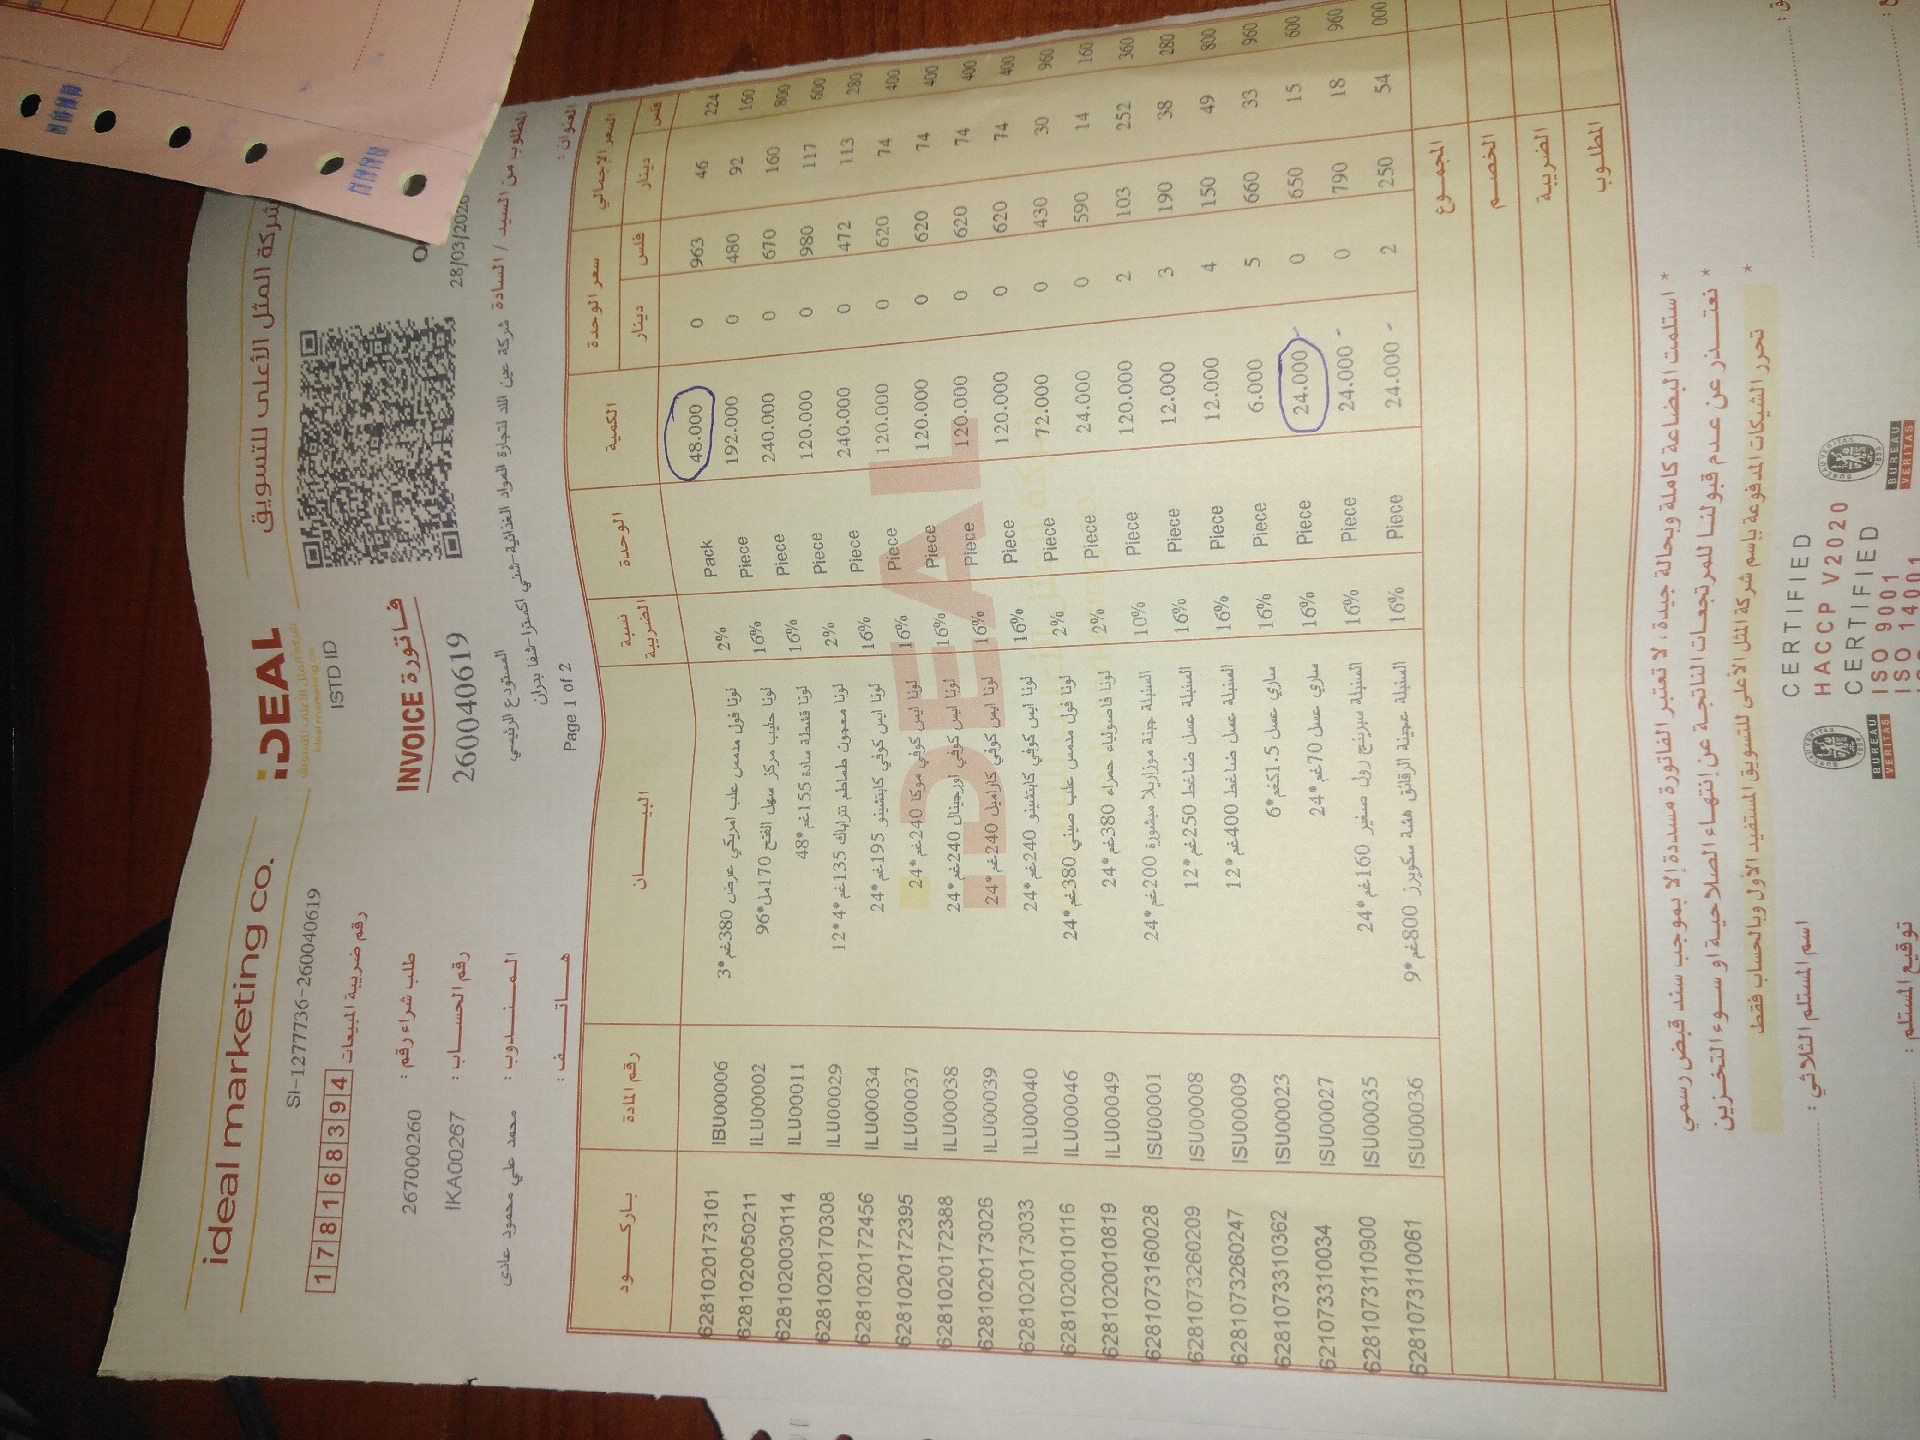 ideal marketing co.
iDEAL
شركة المثل الأعلى للتسويق
ideal marketing co
SI-1277736-260040619
ISTD ID
178168394 رقم ضريبة المبيعات
فاتورة INVOICE
267000260 طلب شراء رقم :
260040619
28/03/2026
IKA00267 رقم الحساب :
محمد علي محمود عادى المندوب :
المستودع الرئيسي
المطلوب من السيد / السادة شركة عين اللد لتجارة المواد الغذائية-شني اكسترا-شفا بدران
هاتف :
Page 1 of 2
العنوان :
باركود رقم المادة البيان نسبة الضريبة الوحدة الكمية سعر الوحدة السعر الاجمالي
دينار فلس دينار فلس
6281020173101 IBU00006 لونا فول مدمس علب امريكي عرض 380غم*3 2% Pack 48.000 0 963 46 224
6281020050211 ILU00002 لونا حليب مركز سهل الفتح 170مل*96 16% Piece 192.000 0 480 92 160
6281020030114 ILU00011 لونا قشطة سادة 155غم*48 16% Piece 240.000 0 670 160 800
6281020170308 ILU00029 لونا معجون طماطم تتراباك 135غم*4*12 2% Piece 120.000 0 980 117 600
6281020172456 ILU00034 لونا ايس كوفي كابتشينو 195غم*24 16% Piece 240.000 0 472 113 280
6281020172395 ILU00037 لونا ايس كوفي موكا 240غم*24 16% Piece 120.000 0 620 74 400
6281020172388 ILU00038 لونا ايس كوفي اورجينال 240غم*24 16% Piece 120.000 0 620 74 400
6281020173026 ILU00039 لونا ايس كوفي كاراميل 240غم*24 16% Piece 120.000 0 620 74 400
6281020173033 ILU00040 لونا ايس كوفي كابتشينو 240غم*24 16% Piece 120.000 0 620 74 400
6281020010116 ILU00046 لونا فول مدمس علب صيني 380غم*24 2% Piece 72.000 0 430 30 960
6281020010819 ILU00049 لونا فاصولياء حمراء 380غم*24 2% Piece 24.000 0 590 14 160
6281073160028 ISU00001 السنبلة جبنة موزاريلا مبشورة 200غم*24 10% Piece 120.000 2 103 252 360
6281073260209 ISU00008 السنبلة عسل ضاغط 250غم*12 16% Piece 12.000 3 190 38 280
6281073260247 ISU00009 السنبلة عسل ضاغط 400غم*12 16% Piece 12.000 4 150 49 800
6281073310362 ISU00023 ساري عسل 1.5كغم*6 16% Piece 6.000 5 660 33 960
6210733100​34 ISU00027 ساري عسل 70غم*24 16% Piece 24.000 0 650 15 600
6281073110900 ISU00035 السنبلة سبرينج رول صغير 160غم*24 16% Piece 24.000 0 790 18 960
6281073110061 ISU00036 السنبلة عجينة الرقائق هشة سكويرز 800غم*9 16% Piece 24.000 2 250 54 000
المجموع
الخصم
الضريبة
المطلوب
* استلمت البضاعة كاملة وبحالة جيدة، لا تعتبر الفاتورة مسددة إلا بموجب سند قبض رسمي
* نعتذر عن عدم قبولنا للمرتجعات الناتجة عن إنتهاء الصلاحية او سوء التخزين
* تحرر الشيكات المدفوعة بإسم شركة المثل الأعلى للتسويق المستفيد الأول وبالحساب فقط
اسم المستلم الثلاثي :
توقيع المستلم :
CERTIFIED
HACCP V2020
CERTIFIED
ISO 9001
ISO 14001
BUREAU VERITAS
BUREAU VERITAS